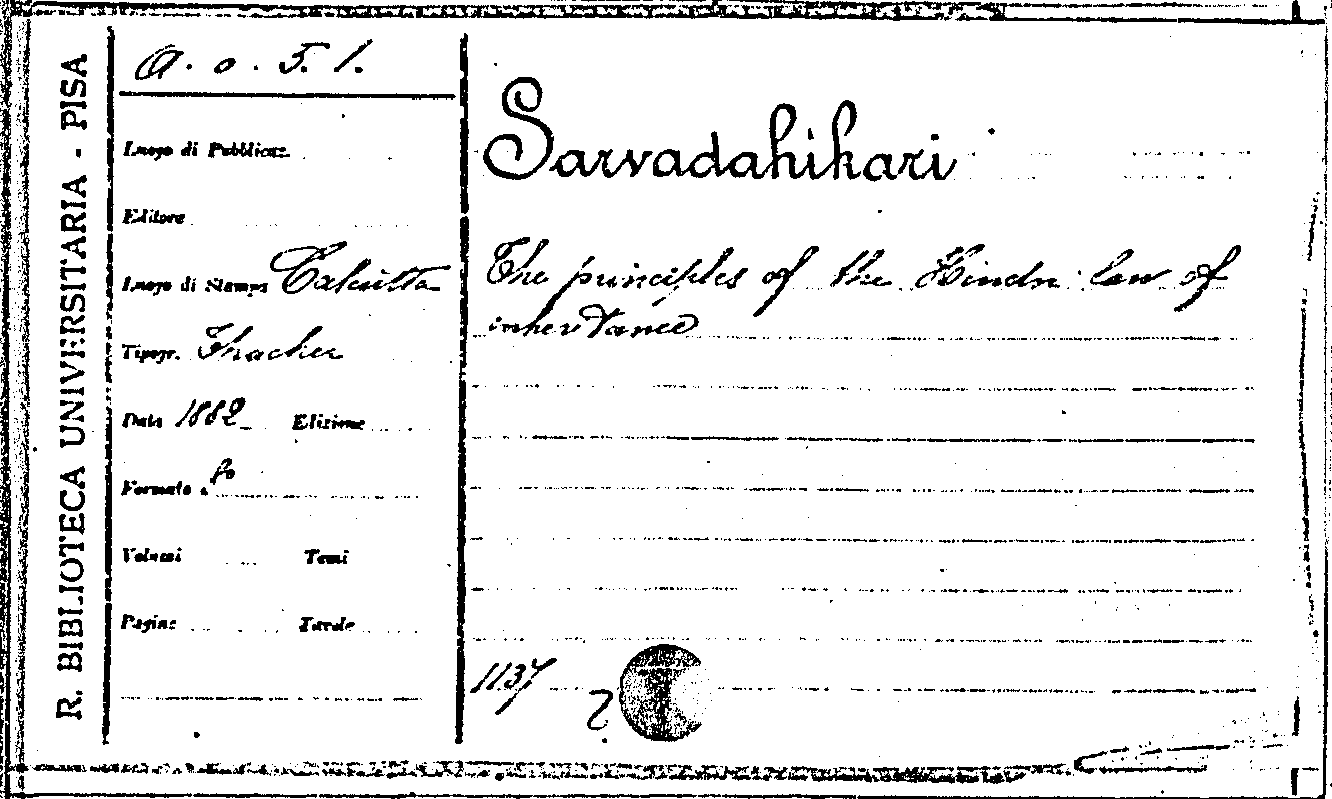 R. BIBLIOTECA UNIVERSITARIA - PISA
a. o. 5. 1.
Luogo di Pubblicaz.
Editore
Luogo di Stampa Calcutta
Tipogr. Thacker
Data 1882 Edizione
Formato 8º
Volumi Tomi
Pagine Tavole
Sarvadahikari
The principles of the Hindu law of
inheritance
1137
?